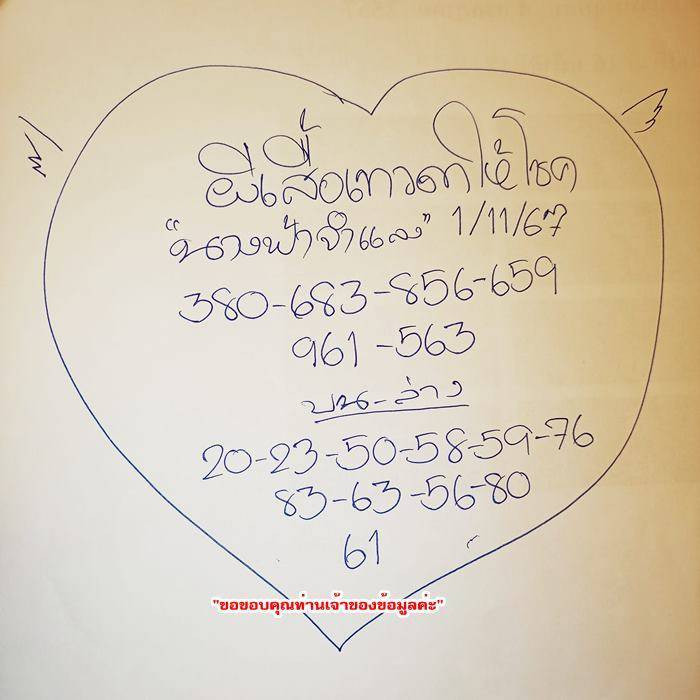 ผีเสื้อเทวดาให้โชค
"นางฟ้าจำแลง" 1/11/67
380-683-856-659
961-563
บน-ล่าง
20-23-50-58-59-76
83-63-56-80
61
"ขอขอบคุณท่านเจ้าของข้อมูลค่ะ"